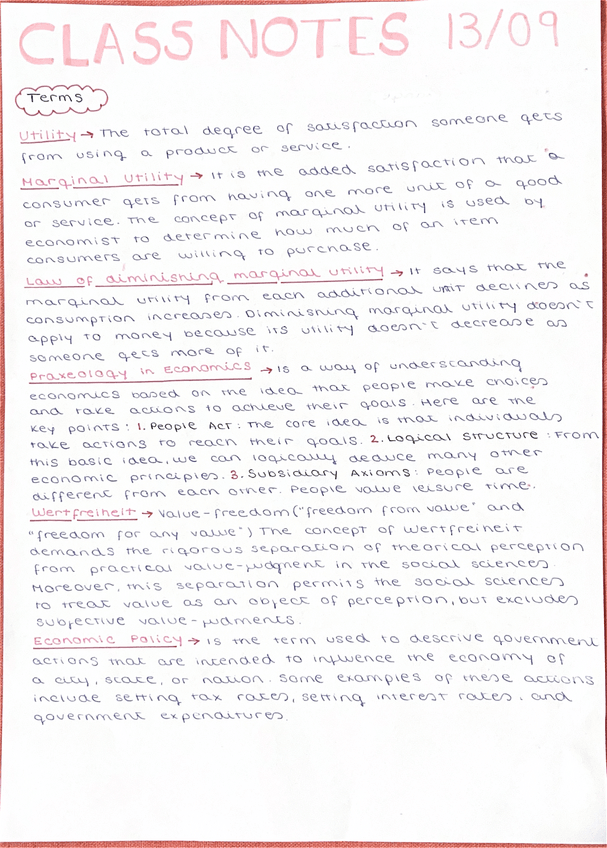 CLASS NOTES 13/09
Terms
Utility → The total degree of satisfaction someone gets
from using a product or service.
Marginal Utility → It is the added satisfaction that a
consumer gets from having one more unit of a good
or service. The concept of marginal utility is used by
economist to determine how much of an item
consumers are willing to purchase.
Law of diminishing marginal utility → It says that the
marginal utility from each additional unit declines as
consumption increases. Diminishing marginal utility doesn't
apply to money because its utility doesn't decrease as
someone gets more of it.
Praxeology in Economics → Is a way of understanding
economics based on the idea that people make choices
and take actions to achieve their goals. Here are the
key points: 1. People Act: The core idea is that individuals
take actions to reach their goals. 2. Logical Structure: From
this basic idea, we can logically deduce many other
economic principles. 3. Subsidiary Axioms: People are
different from each other. People value leisure time.
Wertfreiheit → Value-freedom ("freedom from value" and
"freedom for any value") The concept of Wertfreiheit
demands the rigorous separation of theorical perception
from practical value-judgment in the social sciences.
Moreover, this separation permits the social sciences
to treat value as an object of perception, but excludes
subjective value-judments.
Economic Policy → Is the term used to descrive government
actions that are intended to influence the economy of
a city, state, or nation. Some examples of these actions
include setting tax rates, setting interest rates, and
government expenditures.